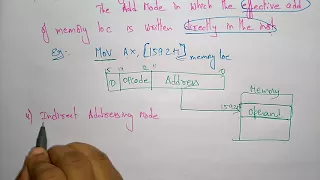 The Add Mode in which the effective add
of memory loc is written directly in the inst
Ex:- MOV AX, [1592H] memory loc
15 12 11 0
0 Opcode Address
Memory
1592H Operand
4) Indirect Addressing Mode